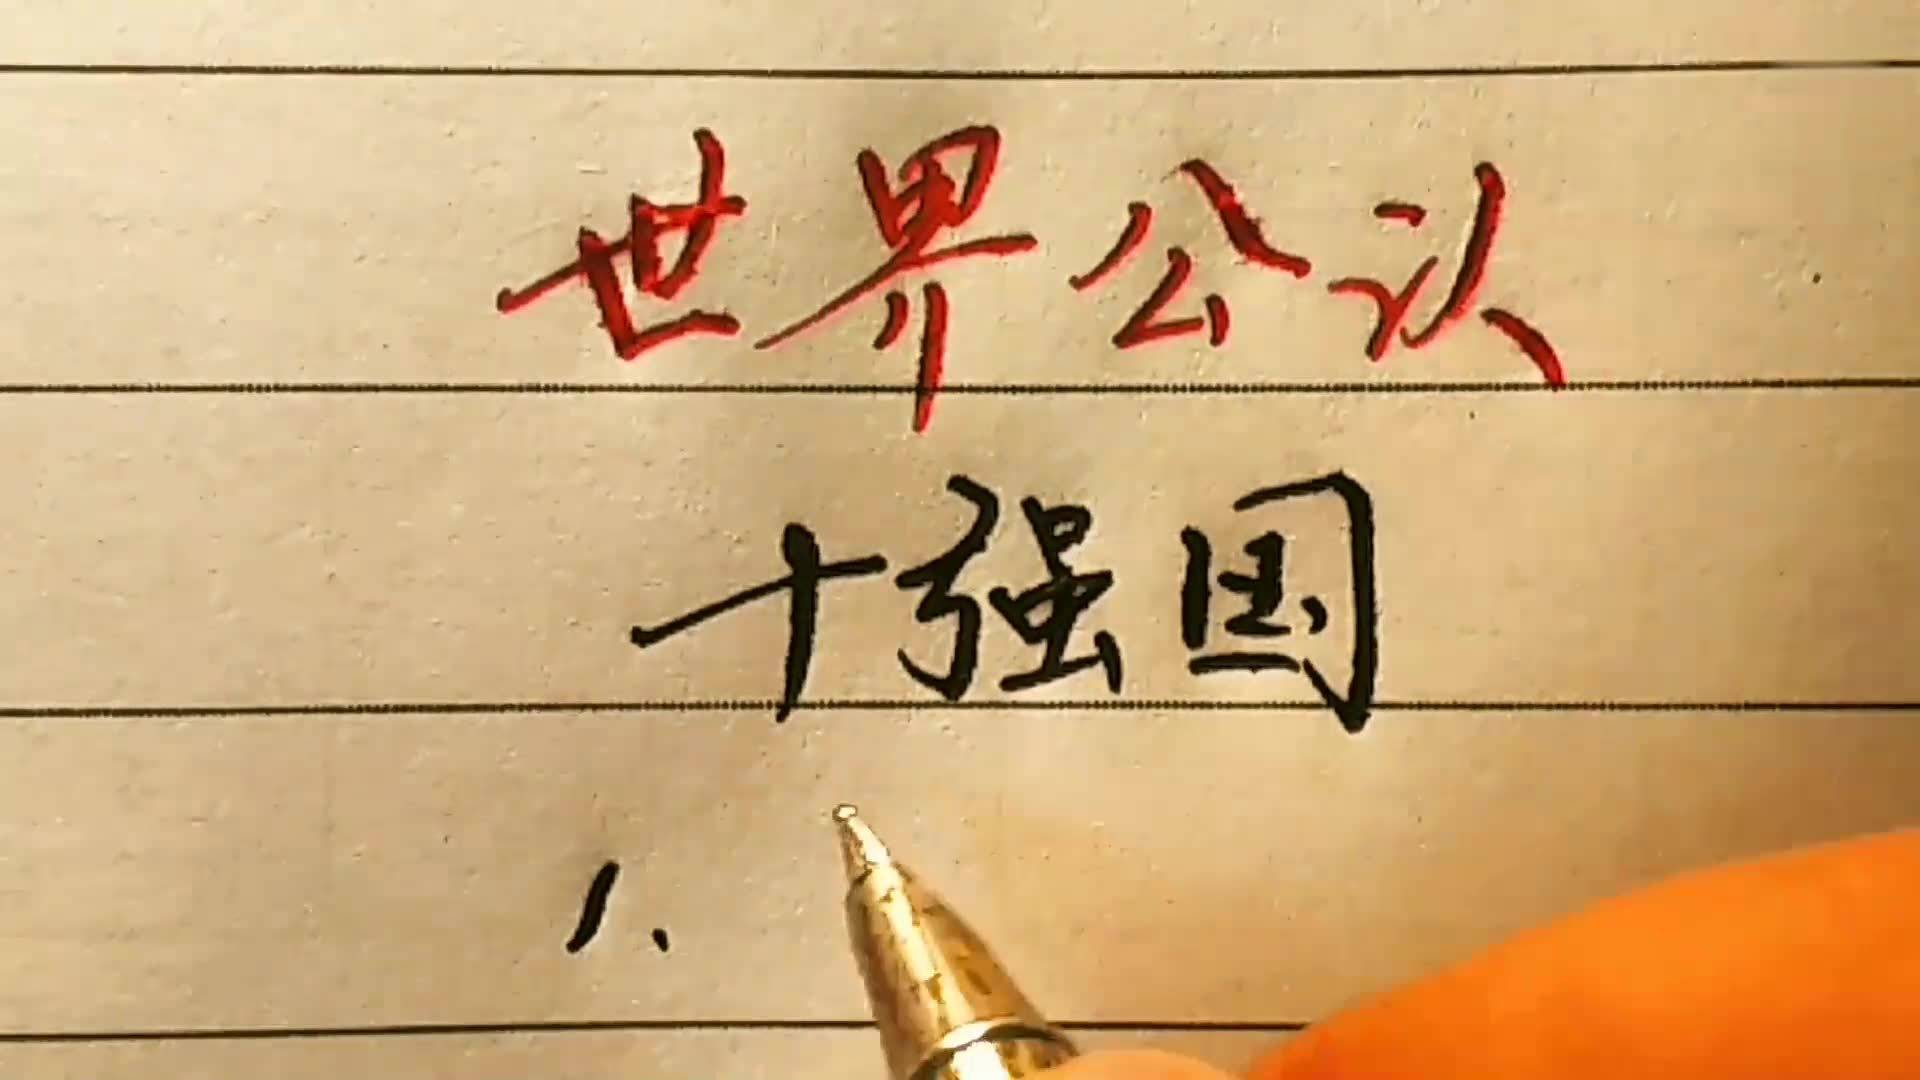 世界公认
十强国
1.